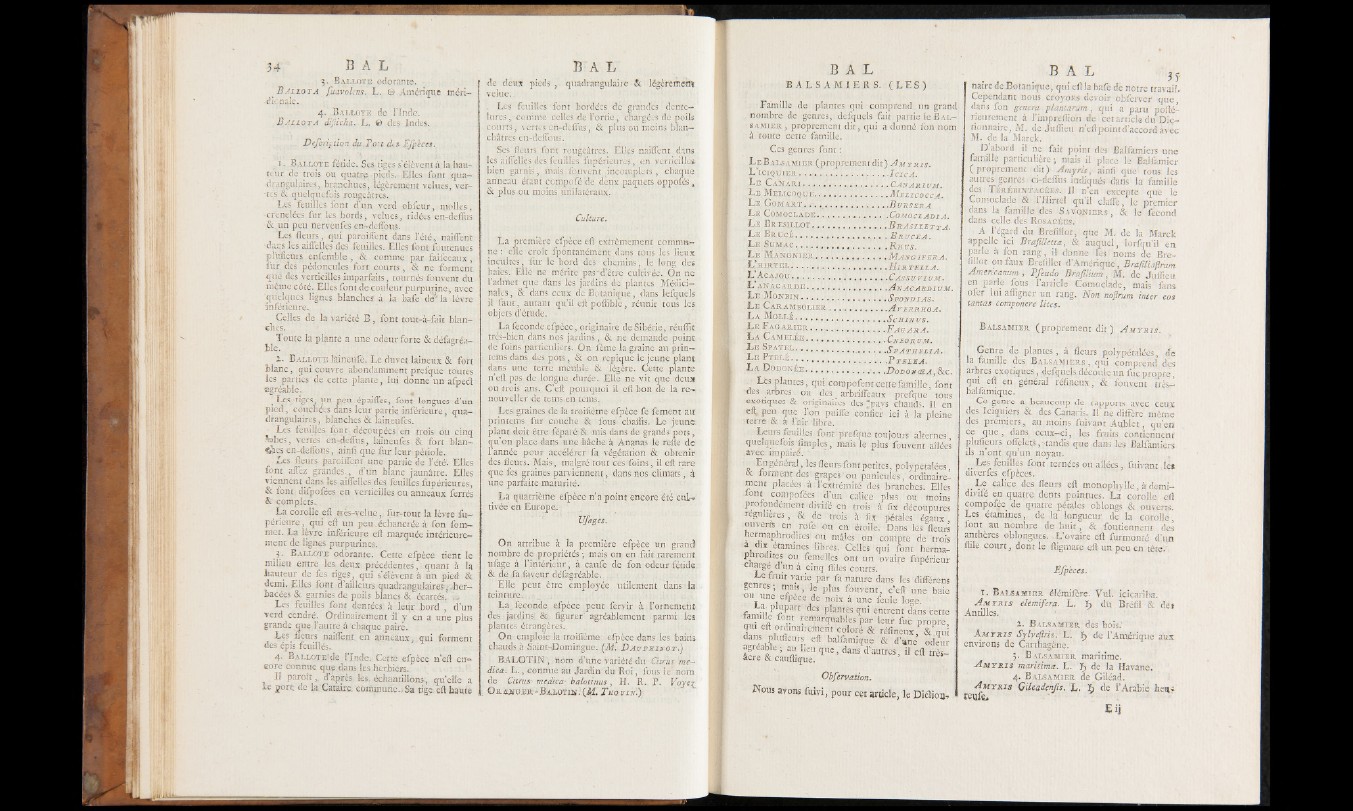 34 BAL
3. BALLOTE odorante.
BALLOTA suaveolens. L. ☉ Amérique méri-
dionale.
4. BALLOTE de l'Inde.
BALLOTA disticha. L. ☉ des Indes.
Description du Port des Espèces.
1. BALLOTE fétide. Ses tiges s'élèvent à la hau-
teur de trois ou quatre pieds. Elles sont qua-
drangulaires, branchues, légèrement velues, ver-
tes & quelquefois rougeâtres.
Les feuilles sont d'un verd obscur, molles,
crenelées sur les bords, velues, ridées en-dessus
& un peu nerveuses en-dessous.
Les fleurs, qui paroissent dans l'été, naissent
dans les aisselles des feuilles. Elles sont soutenues
plusieurs ensemble, & comme par faisceaux,
sur des pédoncules fort courts, & ne forment
que des verticilles imparfaits, tournés souvent du
même côté. Elles sont de couleur purpurine, avec
quelques lignes blanches à la base de la lèvre
inférieure.
Celles de la variété B, sont tout-à-fait blan-
ches.
Toute la plante a une odeur forte & désagréa-
ble.
2. BALLOTE laineuse. Le duvet laineux & fort
blanc, qui couvre abondamment presque toutes
les parties de cette plante, lui donne un aspect
agréable.
Les tiges, un peu épaisses, sont longues d'un
pied, couchées dans leur partie inférieure, qua-
drangulaires, blanches & laineuses.
Les feuilles sont découpées en trois ou cinq
lobes, vertes en-dessus, laineuses & fort blan-
ches en-dessous, ainsi que sur leur pétiole.
Les fleurs paroissent une partie de l'été. Elles
sont assez grandes, d'un blanc jaunâtre. Elles
viennent dans les aisselles des feuilles supérieures,
& sont disposées en verticilles ou anneaux serrés
& complets.
La corolle est très-velue, sur-tout la lèvre su-
périeure, qui est un peu échancrée à son som-
met. La lèvre inférieure est marquée intérieure-
ment de lignes purpurines.
3. BALLOTE odorante. Cette espèce tient le
milieu entre les deux précédentes, quant à la
hauteur de ses tiges, qui s'élèvent à un pied &
demi. Elles sont d'ailleurs quadrangulaires, her-
bacées & garnies de poils blancs & écartés.
Les feuilles sont dentées à leur bord, d'un
verd cendré. Ordinairement il y en a une plus
grande que l'autre à chaque paire.
Les fleurs naissent en anneaux, qui forment
des épis feuillés.
4. BALLOTE de l'Inde. Cette espèce n'est en-
core connue que dans les herbiers.
Il paroît, d'après les échantillons, qu'elle a
le port de la Cataire commune. Sa tige est haute
BAL
de deux pieds, quadrangulaire & légèrement
velue.
Les feuilles sont bordées de grandes dente-
lures, comme celles de l'ortie, chargées de poils
courts, vertes en-dessus, & plus ou moins blan-
châtres en-dessous.
Ses fleurs sont rougeâtres. Elles naissent dans
les aisselles des feuilles supérieures, en verticilles
bien garnis, mais souvent incomplets, chaque
anneau étant composé de deux paquets opposés,
& plus ou moins unilatéraux.
Culture.
La première espèce est extrêmement commu-
ne: elle croît spontanément dans tous les lieux
incultes, sur le bord des chemins, le long des
haies. Elle ne mérite pas d'être cultivée. On ne
l'admet que dans les jardins de plantes Médici-
nales, & dans ceux de Botanique, dans lesquels
il faut, autant qu'il est possible, réunir tous les
objets d'étude.
La seconde espèce, originaire de Sibérie, réussit
très-bien dans nos jardins, & ne demande point
de soins particuliers. On sème la graine au prin-
tems dans des pots, & on repique le jeune plant
dans une terre meuble & légère. Cette plante
n'est pas de longue durée. Elle ne vit que deux
ou trois ans. C'est pourquoi il est bon de la re-
nouveller de tems en tems.
Les graines de la troisième espèce se sement au
printems sur couche & sous chassis. Le jeune
plant doit être séparé & mis dans de grands pots,
qu'on place dans une bâche à Ananas le reste de
l'année pour accélérer sa végétation & obtenir
des fleurs. Mais, malgré tout ces soins, il est rare
que les graines parviennent, dans nos climats, à
une parfaite maturité.
La quatrième espèce n'a point encore été cul-
tivée en Europe.
Usages.
On attribue à la première espèce un grand
nombre de propriétés; mais on en fait rarement
usage à l'intérieur, à cause de son odeur fétide
& de sa saveur désagréable.
Elle peut être employée utilement dans la
teinture.
La seconde espèce peut servir à l'ornement
des jardins & figurer agréablement parmi les
plantes étrangères.
On emploie la troisième espèce dans les bains
chauds à Saint-Domingue. (M. DAUPHINOT.)
BALOTIN, nom d'une variété du Citrus me-
dica. L., connue au Jardin du Roi, sous le nom
de Citrus medica balotinus, H. R. P. Voyez
ORANGER-BALOTIN. (M. THOUIN.)
BAL
BALSAMIERS. (LES)
Famille de plantes qui comprend un grand
nombre de genres, desquels fait partie le BAL-
SAMIER, proprement dit, qui a donné son nom
à toute cette famille.
Ces genres sont:
LE BALSAMIER (proprement dit) AMYRIS.
L'ICIQUIER..........ICICA.
LE CANARI..........CANARIUM.
LE MELICOQUE..........MELICOCCA.
LE GOMART..........BURSERA.
LE COMOCLADE..........COMOCLADIA.
LE BRESILLOT..........BRASILETTA.
LE BRUCÉ..........BRUCEA.
LE SUMAC..........RHUS.
LE MANGNIER..........MANGIFERA.
L'HIRTEL..........HIRTELLA.
L'ACAJOU..........CASSUVIUM.
L'ANACARDE..........ANACARDIUM.
LE MONBIN..........SPONDIAS.
LE CARAMBOLIER..........AVERRHOA.
LA MOLLÉ..........SCHINUS.
LE FAGARIER..........FAGARA.
LA CAMELÉE..........CNEORUM.
LE SPATEL..........SPATHELIA.
LE PTELÉ..........PTELEA.
LA DODONÉE..........DODONÆA, &c.
Les plantes, qui composent cette famille, sont
des arbres ou des arbrisseaux presque tous
exotiques & originaires des pays chauds. Il en
est, peu que l'on puisse confier ici à la pleine
terre & à l'air libre.
Leurs feuilles sont presque toujours alternes,
quelquefois simples, mais le plus souvent ailées
avec impaire.
En général, les fleurs sont petites, polypetalées,
& forment des grapes ou panicules, ordinaire-
ment placées à l'extrémité des branches. Elles
sont composées d'un calice plus ou moins
profondément divisé en trois à six découpures
régulières, & de trois à six pétales égaux,
ouverts en rose ou en étoile. Dans les fleurs
hermaphrodites ou mâles on compte de trois
à dix étamines libres. Celles qui sont herma-
phrodites ou femelles ont un ovaire supérieur
chargé d'un à cinq stiles courts.
Le fruit varie par sa nature dans les différens
genres; mais, le plus souvent, c'est une baie
ou une espèce de noix à une seule loge.
La plupart des plantes qui entrent dans cette
famille sont remarquables par leur suc propre,
qui est ordinairement coloré & résineux, & qui
dans plusieurs est balsamique & d'une odeur
agréable; au lieu que, dans d'autres, il est très-
âcre & caustique.
Observation.
Nous avons suivi, pour cet article, le Diction-
BAL 35
naire de Botanique, qui est la base de notre travail.
Cependant nous croyons devoir observer que,
dans son genera plantarum, qui a paru posté-
rieurement à l'impression de cet article du Dic-
tionnaire, M. de Jussieu n'est point d'accord avec
M. de la Marck.
D'abord il ne fait point des Balsamiers une
famille particulière; mais il place le Balsamier
(proprement dit) Amyris, ainsi que tous les
autres genres ci-dessus indiqués dans la famille
des TÉRÉBINTACÉES. Il n'en excepte que le
Comoclade & l'Hirtel qu'il classe, le premier
dans la famille des SAVONIERS, & le second
dans celle des ROSACÉES.
A l'égard du Bresillot, que M. de la Marck
appelle ici Brasiletta, & auquel, lorsqu'il en
parle à son rang, il donne les noms de Bre-
sillot ou faux Brésillet d'Amérique, Brasiliastrum
Americanum, Pseudo Brasilium, M. de Jussieu
en parle sous l'article Comoclade, mais sans
oser lui assigner un rang. Non nostrum inter eos
tantas componere lites.
BALSAMIER (proprement dit) AMYRIS.
Genre de plantes, à fleurs polypétalées, de
la famille des BALSAMIERS, qui comprend des
arbres exotiques, desquels découle un suc propre,
qui est en général résineux, & souvent très-
balsamique.
Ce genre a beaucoup de rapports avec ceux
des Iciquiers & des Canaris. Il ne diffère même
des premiers, au moins suivant Aublet, qu'en
ce que, dans ceux-ci, les fruits contiennent
plusieurs osselets, tandis que dans les Balsamiers
ils n'ont qu'un noyau.
Les feuilles sont ternées ou ailées, suivant les
diverses espèces.
Le calice des fleurs est monophylle, à demi-
divisé en quatre dents pointues. La corolle est
composée de quatre pétales oblongs & ouverts.
Les étamines, de la longueur de la corolle,
sont au nombre de huit, & soutiennent des
anthères oblongues. L'ovaire est surmonté d'un
stile court, dont le stigmate est un peu en tête.
Espèces.
1. BALSAMIER élémifère. Vul. icicariba.
AMYRIS elemifera. L. ♄ du Brésil & des
Antilles.
2. BALSAMIER des bois.
AMYRIS Sylvestris. L. ♄ de l'Amérique aux
environs de Carthagène.
3. BALSAMIER maritime.
AMYRIS maritima. L. ♄ de la Havane.
4. BALSAMIER de Giléad.
AMYRIS Gileadensis. L. ♄ de l'Arabie heu-
reuse.
E ij